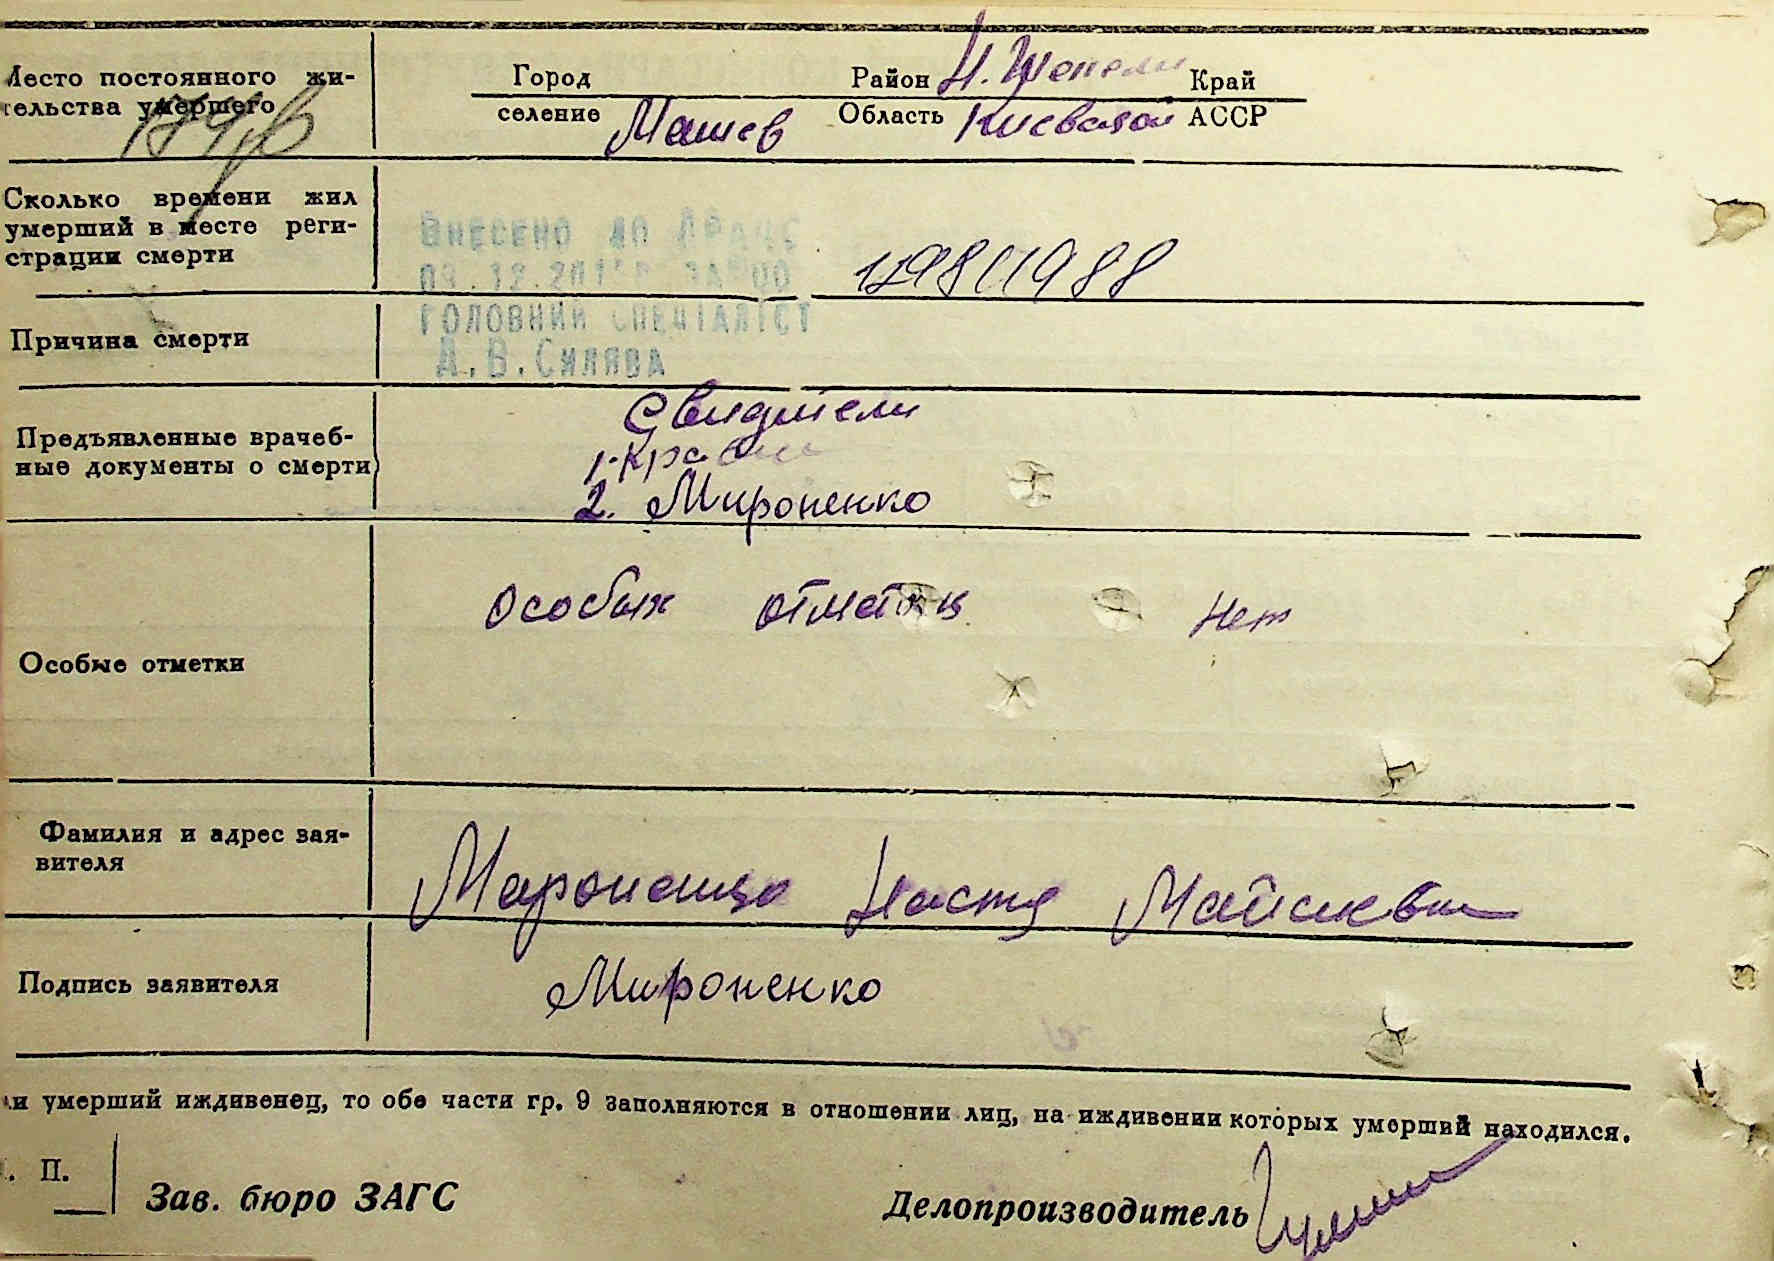 Место постоянного жи-
тельства умершего
Город
Район Н. Шепели
Край
селение Машев
Область Киевской
АССР
Сколько времени жил
умерший в месте реги-
страции смерти
ВНЕСЕНО ДО ДРАЦС
ГОЛОВНИЙ СПЕЦІАЛІСТ
А.В.Силява
Причина смерти
Предъявленные врачеб-
ные документы о смерти
Свидители
2. Мироненко
Особые отметки
Особых отметок нет
Фамилия и адрес зая-
вителя
Мароненко Настя
Подпись заявителя
Мироненко
и умерший иждивенец, то обе части гр. 9 заполняются в отношении лиц, на иждивении которых умерший находился.
П.
Зав. бюро ЗАГС
Делопроизводитель